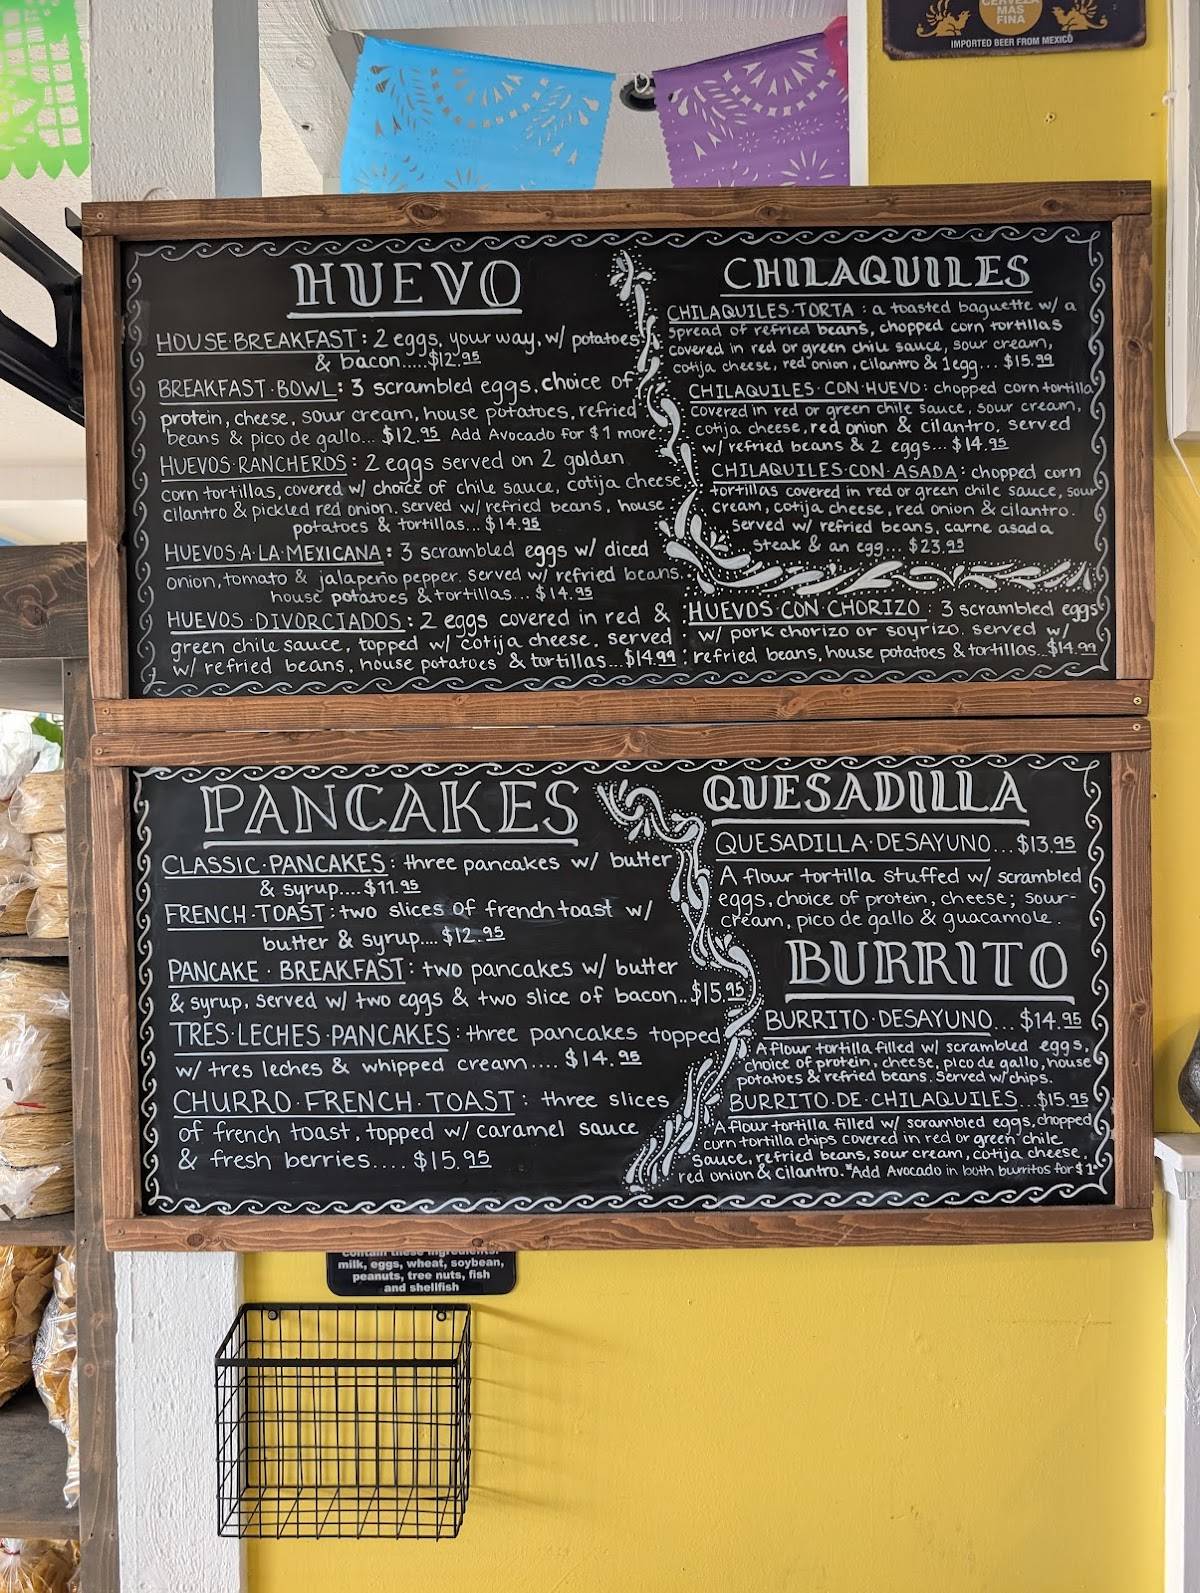 CERVEZA
MAS
FINA
IMPORTED BEER FROM MEXICO
HUEVO
HOUSE·BREAKFAST: 2 eggs, your way, w/ potatoes
& bacon.....$12.95
BREAKFAST·BOWL: 3 scrambled eggs, choice of
protein, cheese, sour cream, house potatoes, refried
beans & pico de gallo... $12.95 Add Avocado for $1 more.
HUEVOS·RANCHEROS: 2 eggs served on 2 golden
corn tortillas, covered w/ choice of chile sauce, cotija cheese,
cilantro & pickled red onion. served w/ refried beans, house
potatoes & tortillas... $14.95
HUEVOS·A·LA·MEXICANA: 3 scrambled eggs w/ diced
onion, tomato & jalapeño pepper. served w/ refried beans.
house potatoes & tortillas... $14.95
HUEVOS·DIVORCIADOS: 2 eggs covered in red &
green chile sauce, topped w/ cotija cheese. served
w/ refried beans, house potatoes & tortillas...$14.99
CHILAQUILES
CHILAQUILES·TORTA: a toasted baguette w/ a
spread of refried beans, chopped corn tortillas
covered in red or green chile sauce, sour cream,
cotija cheese, red onion, cilantro & 1egg... $15.99
CHILAQUILES·CON·HUEVO: chopped corn tortilla
covered in red or green chile sauce, sour cream,
cotija cheese, red onion & cilantro, served
w/ refried beans & 2 eggs... $14.95
CHILAQUILES·CON·ASADA: chopped corn
tortillas covered in red or green chile sauce, sour
cream, cotija cheese, red onion & cilantro.
served w/ refried beans, carne asada
steak & an egg... $23.95
HUEVOS·CON·CHORIZO: 3 scrambled eggs
w/ pork chorizo or soyrizo. served w/
refried beans, house potatoes & tortillas...$14.99
PANCAKES
CLASSIC·PANCAKES: three pancakes w/ butter
& syrup....$11.95
FRENCH·TOAST: two slices of french toast w/
butter & syrup....$12.95
PANCAKE·BREAKFAST: two pancakes w/ butter
& syrup, served w/ two eggs & two slice of bacon..$15.95
TRES·LECHES·PANCAKES: three pancakes topped
w/ tres leches & whipped cream.... $14.95
CHURRO·FRENCH·TOAST: three slices
of french toast, topped w/ caramel sauce
& fresh berries.... $15.95
QUESADILLA
QUESADILLA·DESAYUNO...$13.95
A flour tortilla stuffed w/ scrambled
eggs, choice of protein, cheese, sour-
cream, pico de gallo & guacamole.
BURRITO
BURRITO·DESAYUNO... $14.95
A flour tortilla filled w/ scrambled eggs,
choice of protein, cheese, pico de gallo, house
potatoes & refried beans. Served w/ chips.
BURRITO·DE·CHILAQUILES...$15.95
A flour tortilla filled w/ scrambled eggs, chopped
corn tortilla chips covered in red or green chile
sauce, refried beans, sour cream, cotija cheese,
red onion & cilantro. *Add Avocado in both burritos for $1
contain these ingredients:
milk, eggs, wheat, soybean,
peanuts, tree nuts, fish
and shellfish